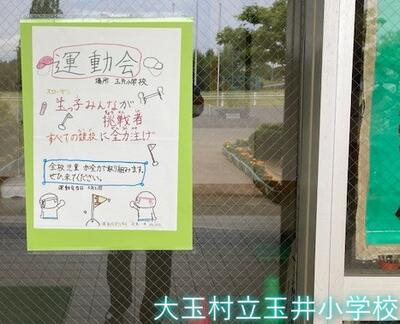 運動会
場所 玉井小学校
スローガン
玉っ子みんなが
挑戦者
すべての競技に全力注げ
全校児童が全力で取り組みます。
ぜひ来てください。
大玉村立玉井小学校